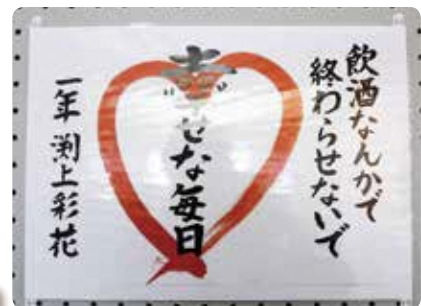 飲酒なんかで
終わらせないで
幸せな毎日
一年 渕上彩花